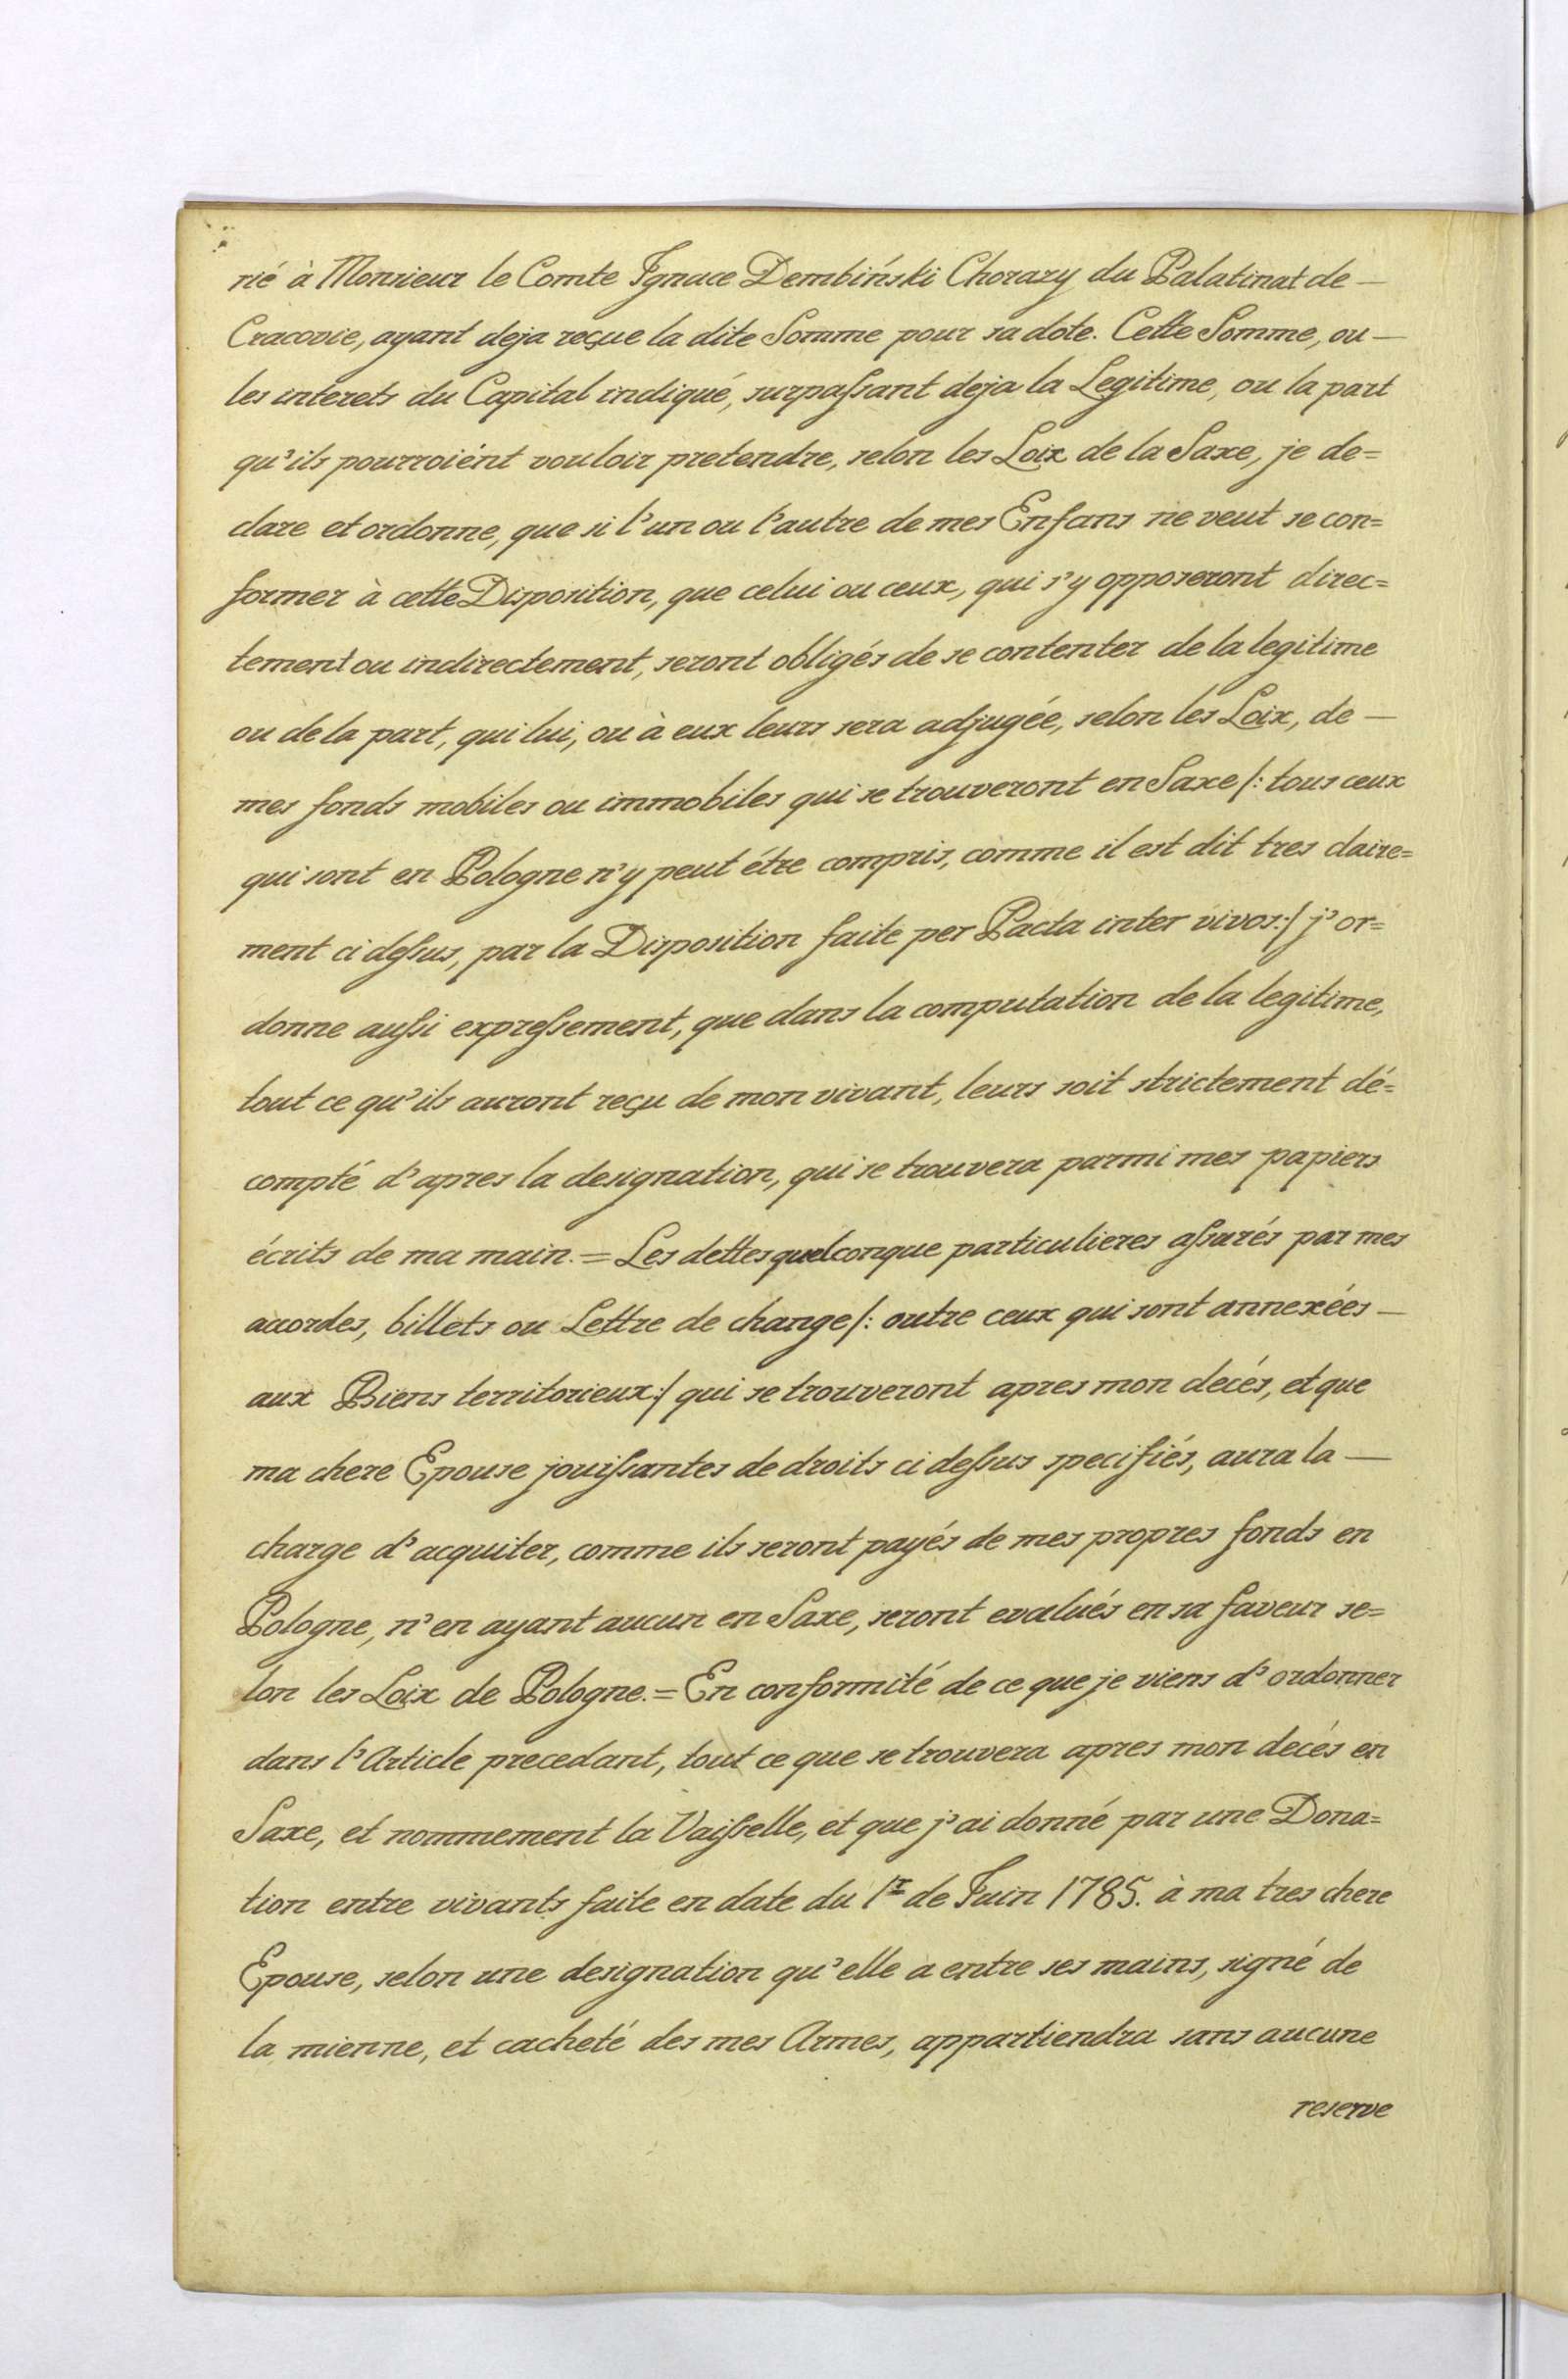 rié à Monsieur le Comte Ignace Dembiński Chorazy du Palatinat de —
Cracovie, ayant deja reçue la dite Somme pour sa dote. Cette Somme, ou —
les interets du Capital indiqué, surpaſsant deja la Legitime, ou la part
qu'ils pourroiént vouloir pretendre, selon les Loix de la Saxe, je de=
clare et ordonne, que si l'un ou l'autre de mes Enfans ne veut se con=
former à cette Disposition, que celui ou ceux, qui s'y opposeront direc=
tement ou indirectement, seront obligés de se contenter de la legitime
ou de la part, qui lui, ou à eux leurs sera adjugée, selon lés Loix, de —
mes fonds mobiles ou immobiles qui se trouveront en Saxe /: tous ceux
qui sont en Pologne n'y peut étre compris, comme il est dit tres claire=
ment ci deſsus, par la Disposition faite per Pacta inter vivos :/ j'or=
donne auſsi expreſsement, que dans la computation de la legitime,
tout ce qu'ils auront reçu de mon vivant, leurs soit strictement dé=
compté d'apres la designation, qui se trouvera parmi mes papiers
écrits de ma main. = Les dettes quelconque particulieres aſsurés par mes
accordes, billets ou Lettre de change /: outre ceux qui sont annexées —
aux Biens territorieux :/ qui se trouveront apres mon decés, et que
ma chere Epouse jouiſsantes de droits ci deſsus specifiés, aura la —
charge d'acquiter, comme ils seront payés de mes propres fonds en
Pologne, n'en ayant aucun en Saxe, seront evalués en sa faveur se=
lon les Loix de Pologne. = En conformité de ce que je viens d'ordonner
dans l'Article precedant, tout ce que se trouvera apres mon decés en
Saxe, et nommement la Vaiſselle, et que j'ai donné par une Dona=
tion entre vivants faite en date du 1r de Juin 1785. à ma tres chere
Epouse, selon une designation qu'elle a entre ses mains, signé de
la mienne, et cacheté des mes Armes, appartiendra sans aucune
reserve